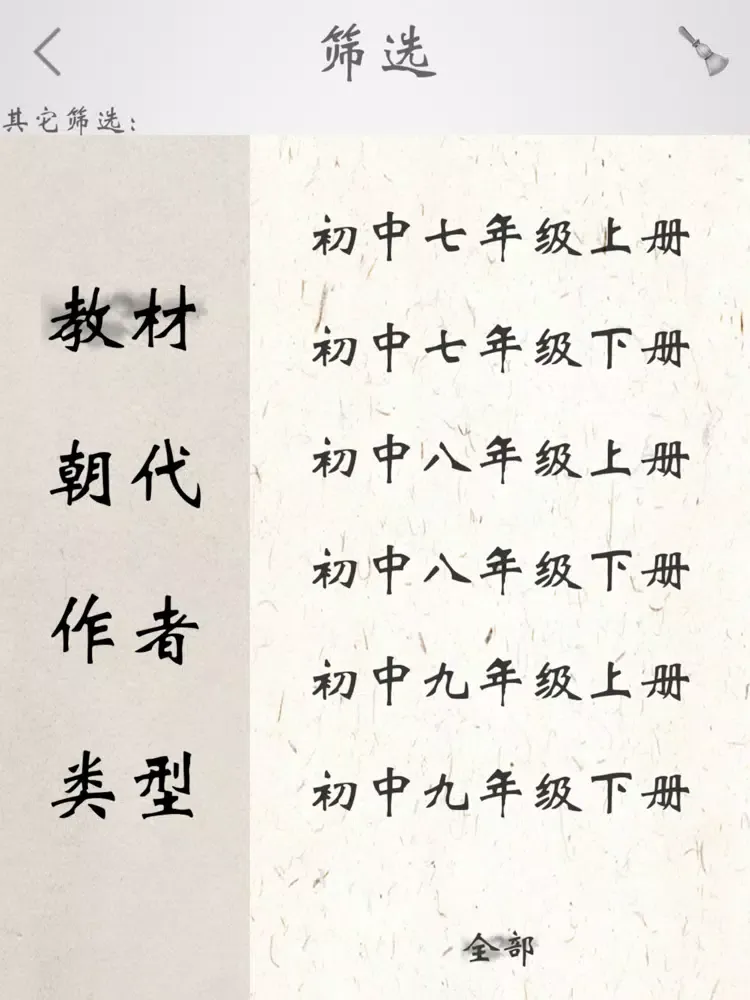 筛选
其它筛选:
教材
朝代
作者
类型
初中七年级上册
初中七年级下册
初中八年级上册
初中八年级下册
初中九年级上册
初中九年级下册
全部